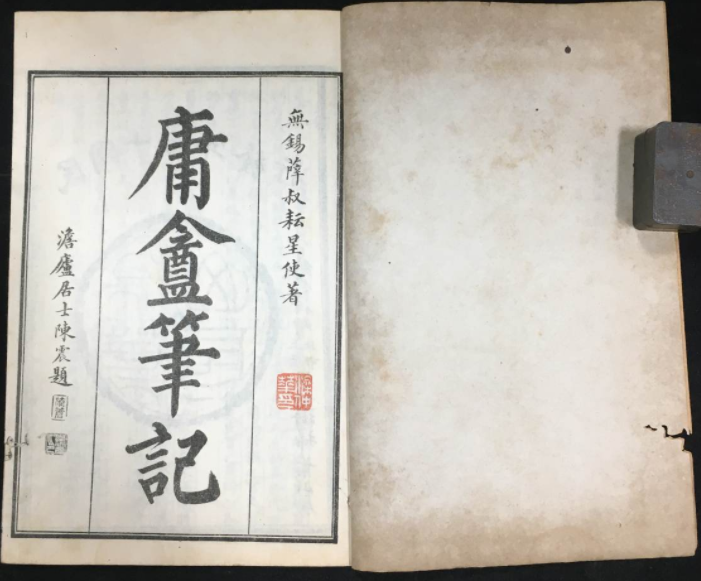 無錫薛叔耘星使著
庸盦筆記
澹廬居士陳震題